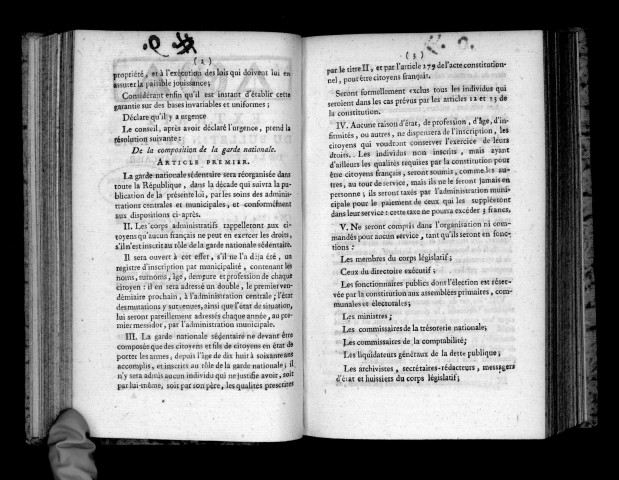 ( 2 )
propriété, et à l'exécution des lois qui doivent lui en
assurer la paisible jouissance;
Considérant enfin qu'il est instant d'établir cette
garantie sur des bases invariables et uniformes;
Déclare qu'il y a urgence
Le conseil, après avoir déclaré l'urgence, prend la
résolution suivante:
De la composition de la garde nationale.
ARTICLE PREMIER.
La garde nationale sédentaire sera réorganisée dans
toute la République, dans la décade qui suivra la pu-
blication de la présente loi, par les soins des adminis-
trations centrales et municipales, et conformément
aux dispositions ci-après.
II. Les corps administratifs rappelleront aux ci-
toyens qu'aucun français ne peut en exercer les droits,
s'il n'est inscrit au rôle de la garde nationale sédentaire.
Il sera ouvert à cet effet, s'il ne l'a déja été, un
registre d'inscription par municipalité, contenant les
noms, surnoms, âge, demeure et profession de chaque
citoyen: il en sera adressé un double, le premier ven-
démiaire prochain, à l'administration centrale; l'état
des mutations y survenues, ainsi que l'état de situation,
lui seront pareillement adressés chaque année, au pre-
mier messidor, par l'administration municipale.
III. La garde nationale sédentaire ne devant être
composée que des citoyens et fils de citoyens en état de
porter les armes, depuis l'âge de dix huit à soixante ans
accomplis, et inscrits au rôle de la garde nationale; il
n'y sera admis aucun individu qui ne justifie avoir, soit
par lui-même, soit par son père, les qualités prescrites
( 3 )
par le titre II, et par l'article 279 de l'acte constitution-
nel, pour être citoyens français.
Seront formellement exclus tous les individus qui
seroient dans les cas prévus par les articles 12 et 13 de
la constitution.
IV. Aucune raison d'état, de profession, d'âge, d'in-
firmités, ou autres, ne dispensera de l'inscription, les
citoyens qui voudront conserver l'exercice de leurs
droits. Les individus non inscrits, mais ayant
d'ailleurs les qualités requises par la constitution pour
être citoyens français, seront soumis, comme les au-
tres, au tour de service, mais ils ne le feront jamais en
personne; ils seront taxés par l'administration muni-
cipale pour le paiement de ceux qui les suppléeront
dans leur service: cette taxe ne pourra excéder 3 francs.
V. Ne seront compris dans l'organisation ni com-
mandés pour aucun service, tant qu'ils seront en fonc-
tions:
Les membres du corps législatif;
Ceux du directoire exécutif;
Les fonctionnaires publics dont l'élection est réser-
vée par la constitution aux assemblées primaires, com-
munales et électorales;
Les ministres;
Les commissaires de la trésorerie nationale;
Les commissaires de la comptabilité;
Les liquidateurs généraux de la dette publique;
Les archivistes, secrétaires-rédacteurs, messagers
d'état et huissiers du corps législatif;